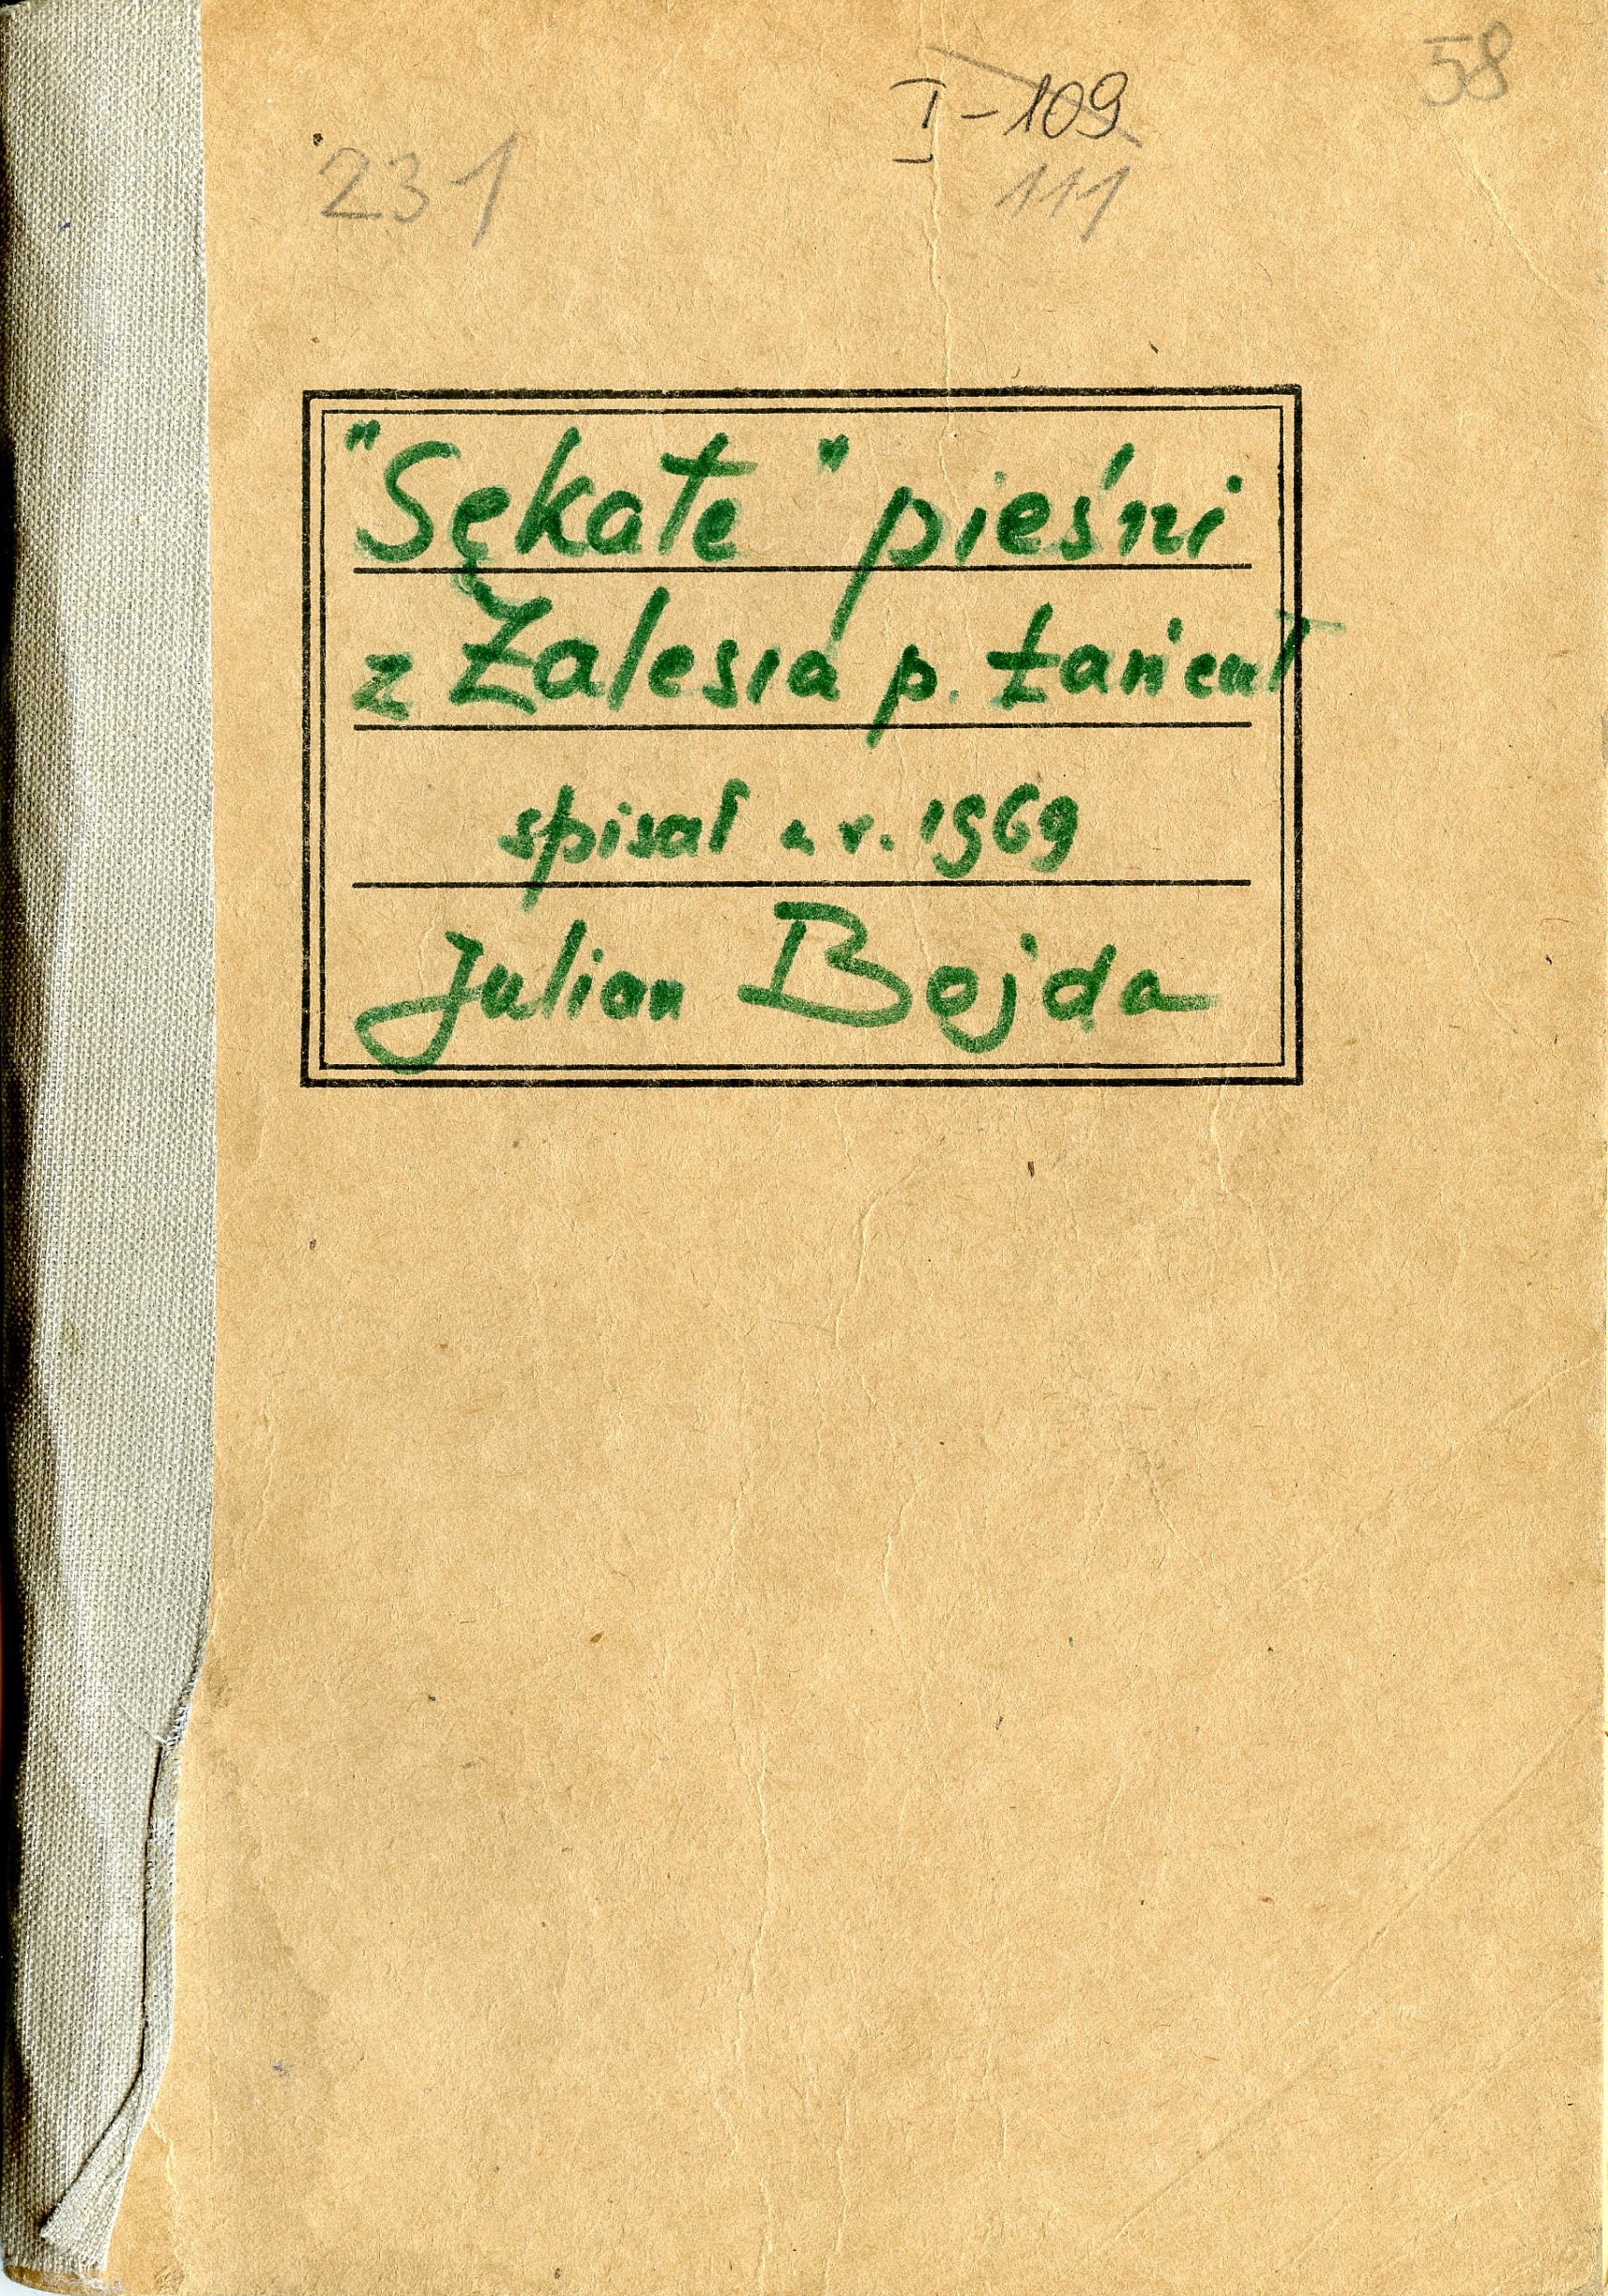 58
I-109
231
111
"Sękate" pieśni
z Zalesia p. Łańcut
spisał w r. 1969
Julian Bojda